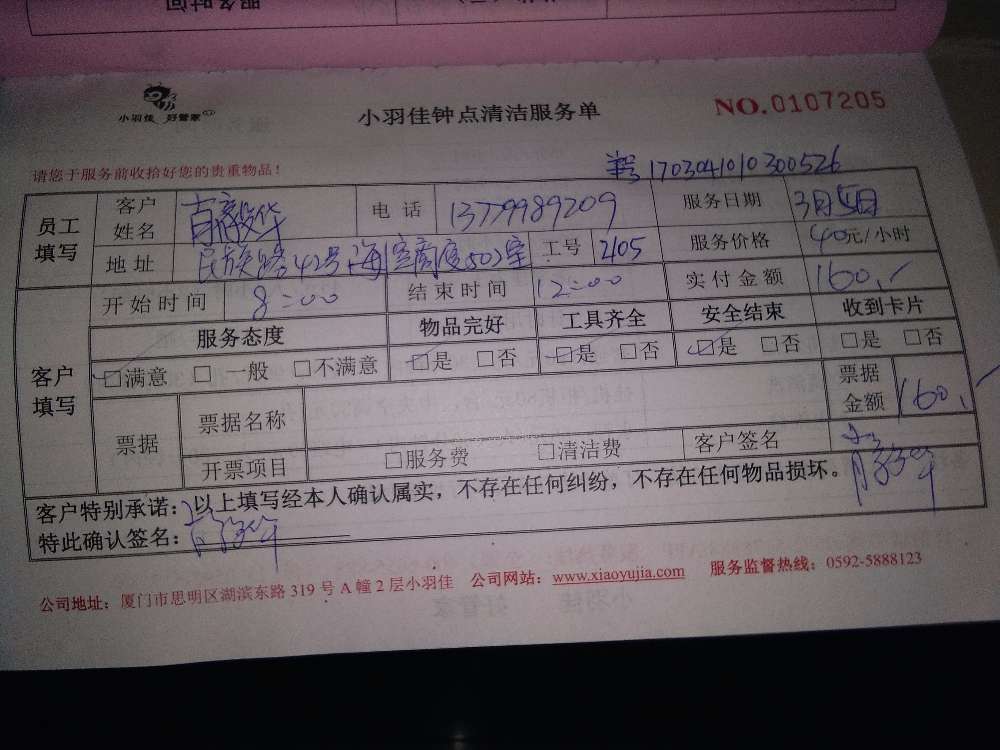 服务时间
小羽佳 好管家
小羽佳钟点清洁服务单
NO.0107205
请您于服务前收拾好您的贵重物品!
单号 1703041010300526
员工填写 客户姓名 电话 13779989209 服务日期 3月5日
地址 民族路42号海 502室 工号 2105 服务价格 40元/小时
客户填写 开始时间 8:00 结束时间 12:00 实付金额 160.-
服务态度 物品完好 工具齐全 安全结束 收到卡片
☑满意 □一般 □不满意 ☑是 □否 ☑是 □否 ☑是 □否 □是 □否
票据 票据名称 票据金额 160.-
开票项目 □服务费 □清洁费 客户签名
客户特别承诺:以上填写经本人确认属实,不存在任何纠纷,不存在任何物品损坏。
特此确认签名:
公司地址:厦门市思明区湖滨东路 319 号 A 幢 2 层小羽佳 公司网站:www.xiaoyujia.com 服务监督热线:0592-5888123